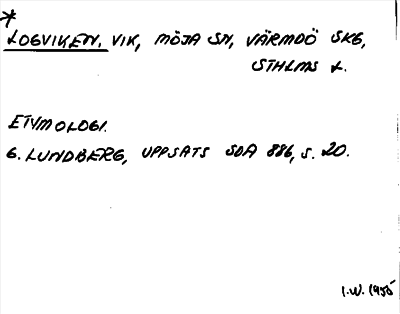 *
LOGVIKEN, VIK, MÖJA SN, VÄRMDÖ SKG,
STHLMS L.
ETYMOLOGI.
G. LUNDBERG, UPPSATS SOA 886, S. 20.
I.W. 1955